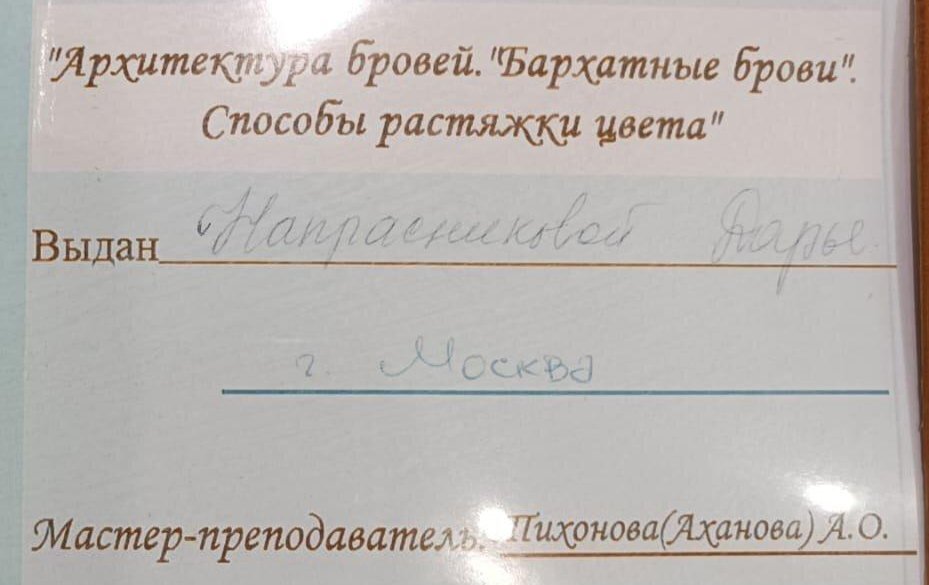 "Архитектура бровей. "Бархатные брови".
Способы растяжки цвета"
Выдан Напрасниковой Дарье
г. Москва
Мастер-преподаватель: Тихонова(Аханова) А.О.